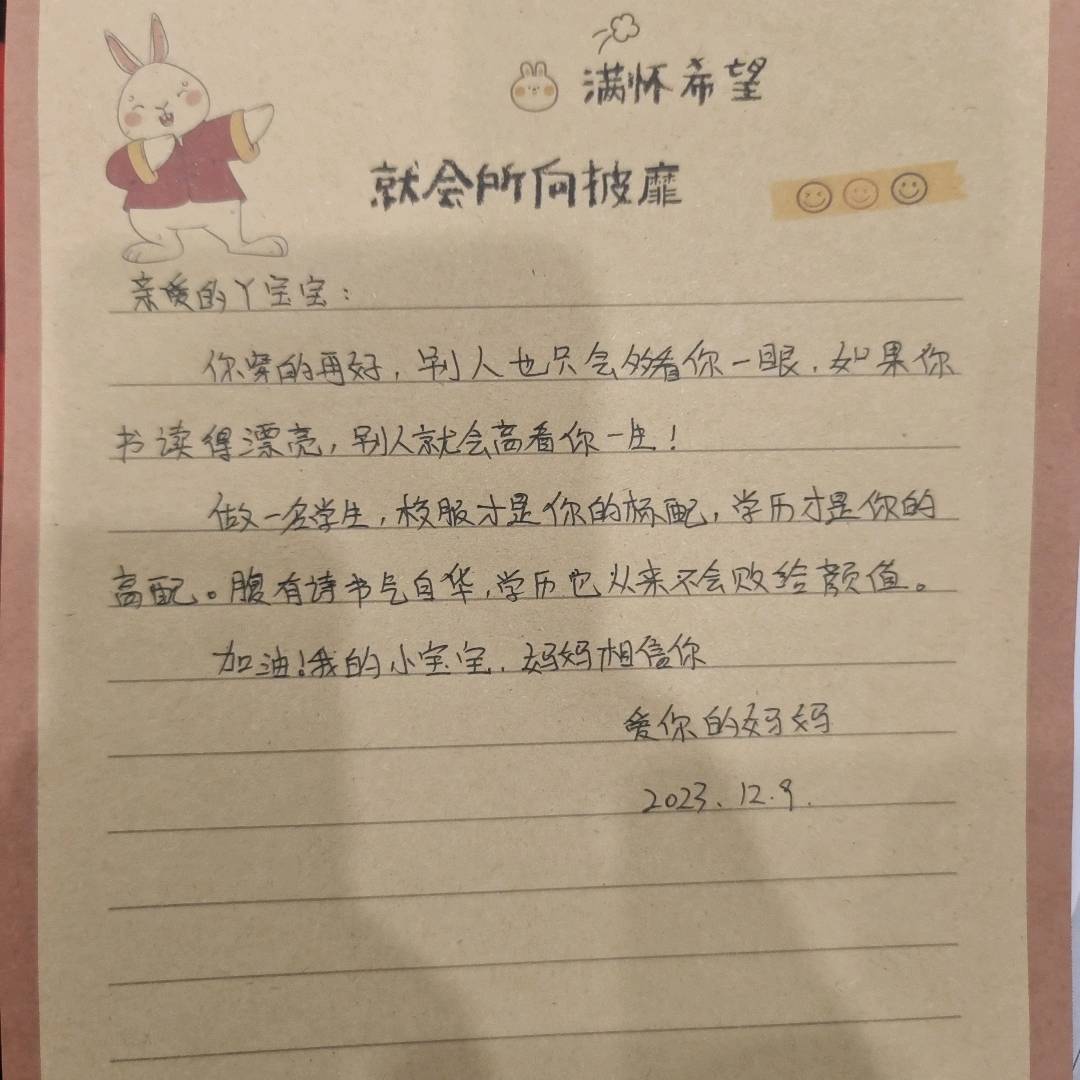 满怀希望
就会所向披靡
亲爱的丫宝宝：
你穿的再好，别人也只会多看你一眼，如果你
书读得漂亮，别人就会高看你一生！
做一名学生，校服才是你的标配，学历才是你的
高配。腹有诗书气自华，学历也从来不会败给颜值。
加油！我的小宝宝，妈妈相信你
爱你的妈妈
2023.12.9.